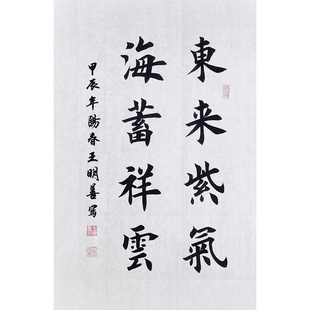 東来紫氣
海蓄祥雲
甲辰年陽春王明善寫